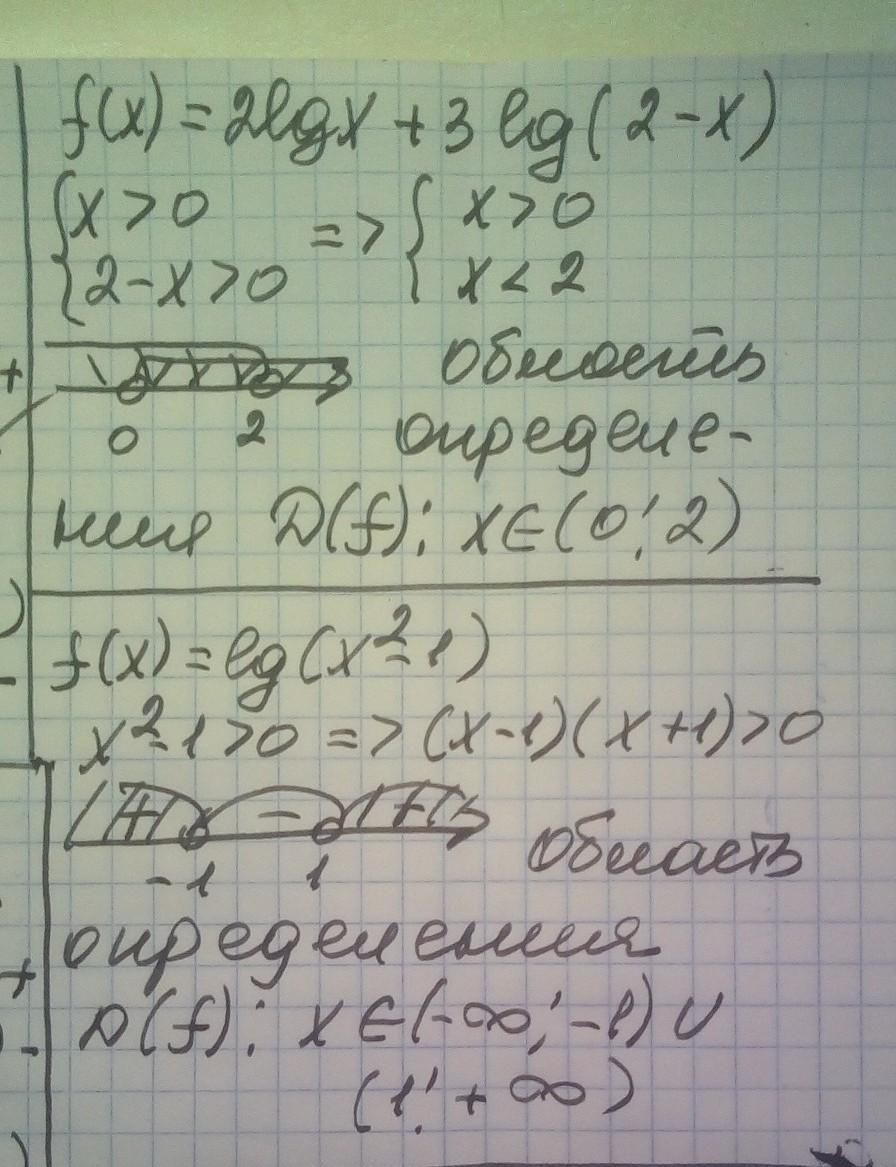 f(x) = 2lgx + 3 lg(2-x)
{x > 0 => { x > 0
{2-x > 0 { x < 2
0 2
область
определе-
ния D(f): x∈(0; 2)
f(x) = lg(x²-1)
x²-1 > 0 => (x-1)(x+1) > 0
+ - +
-1 1
область
определения
D(f): x∈(-∞; -1) ∪
(1; +∞)